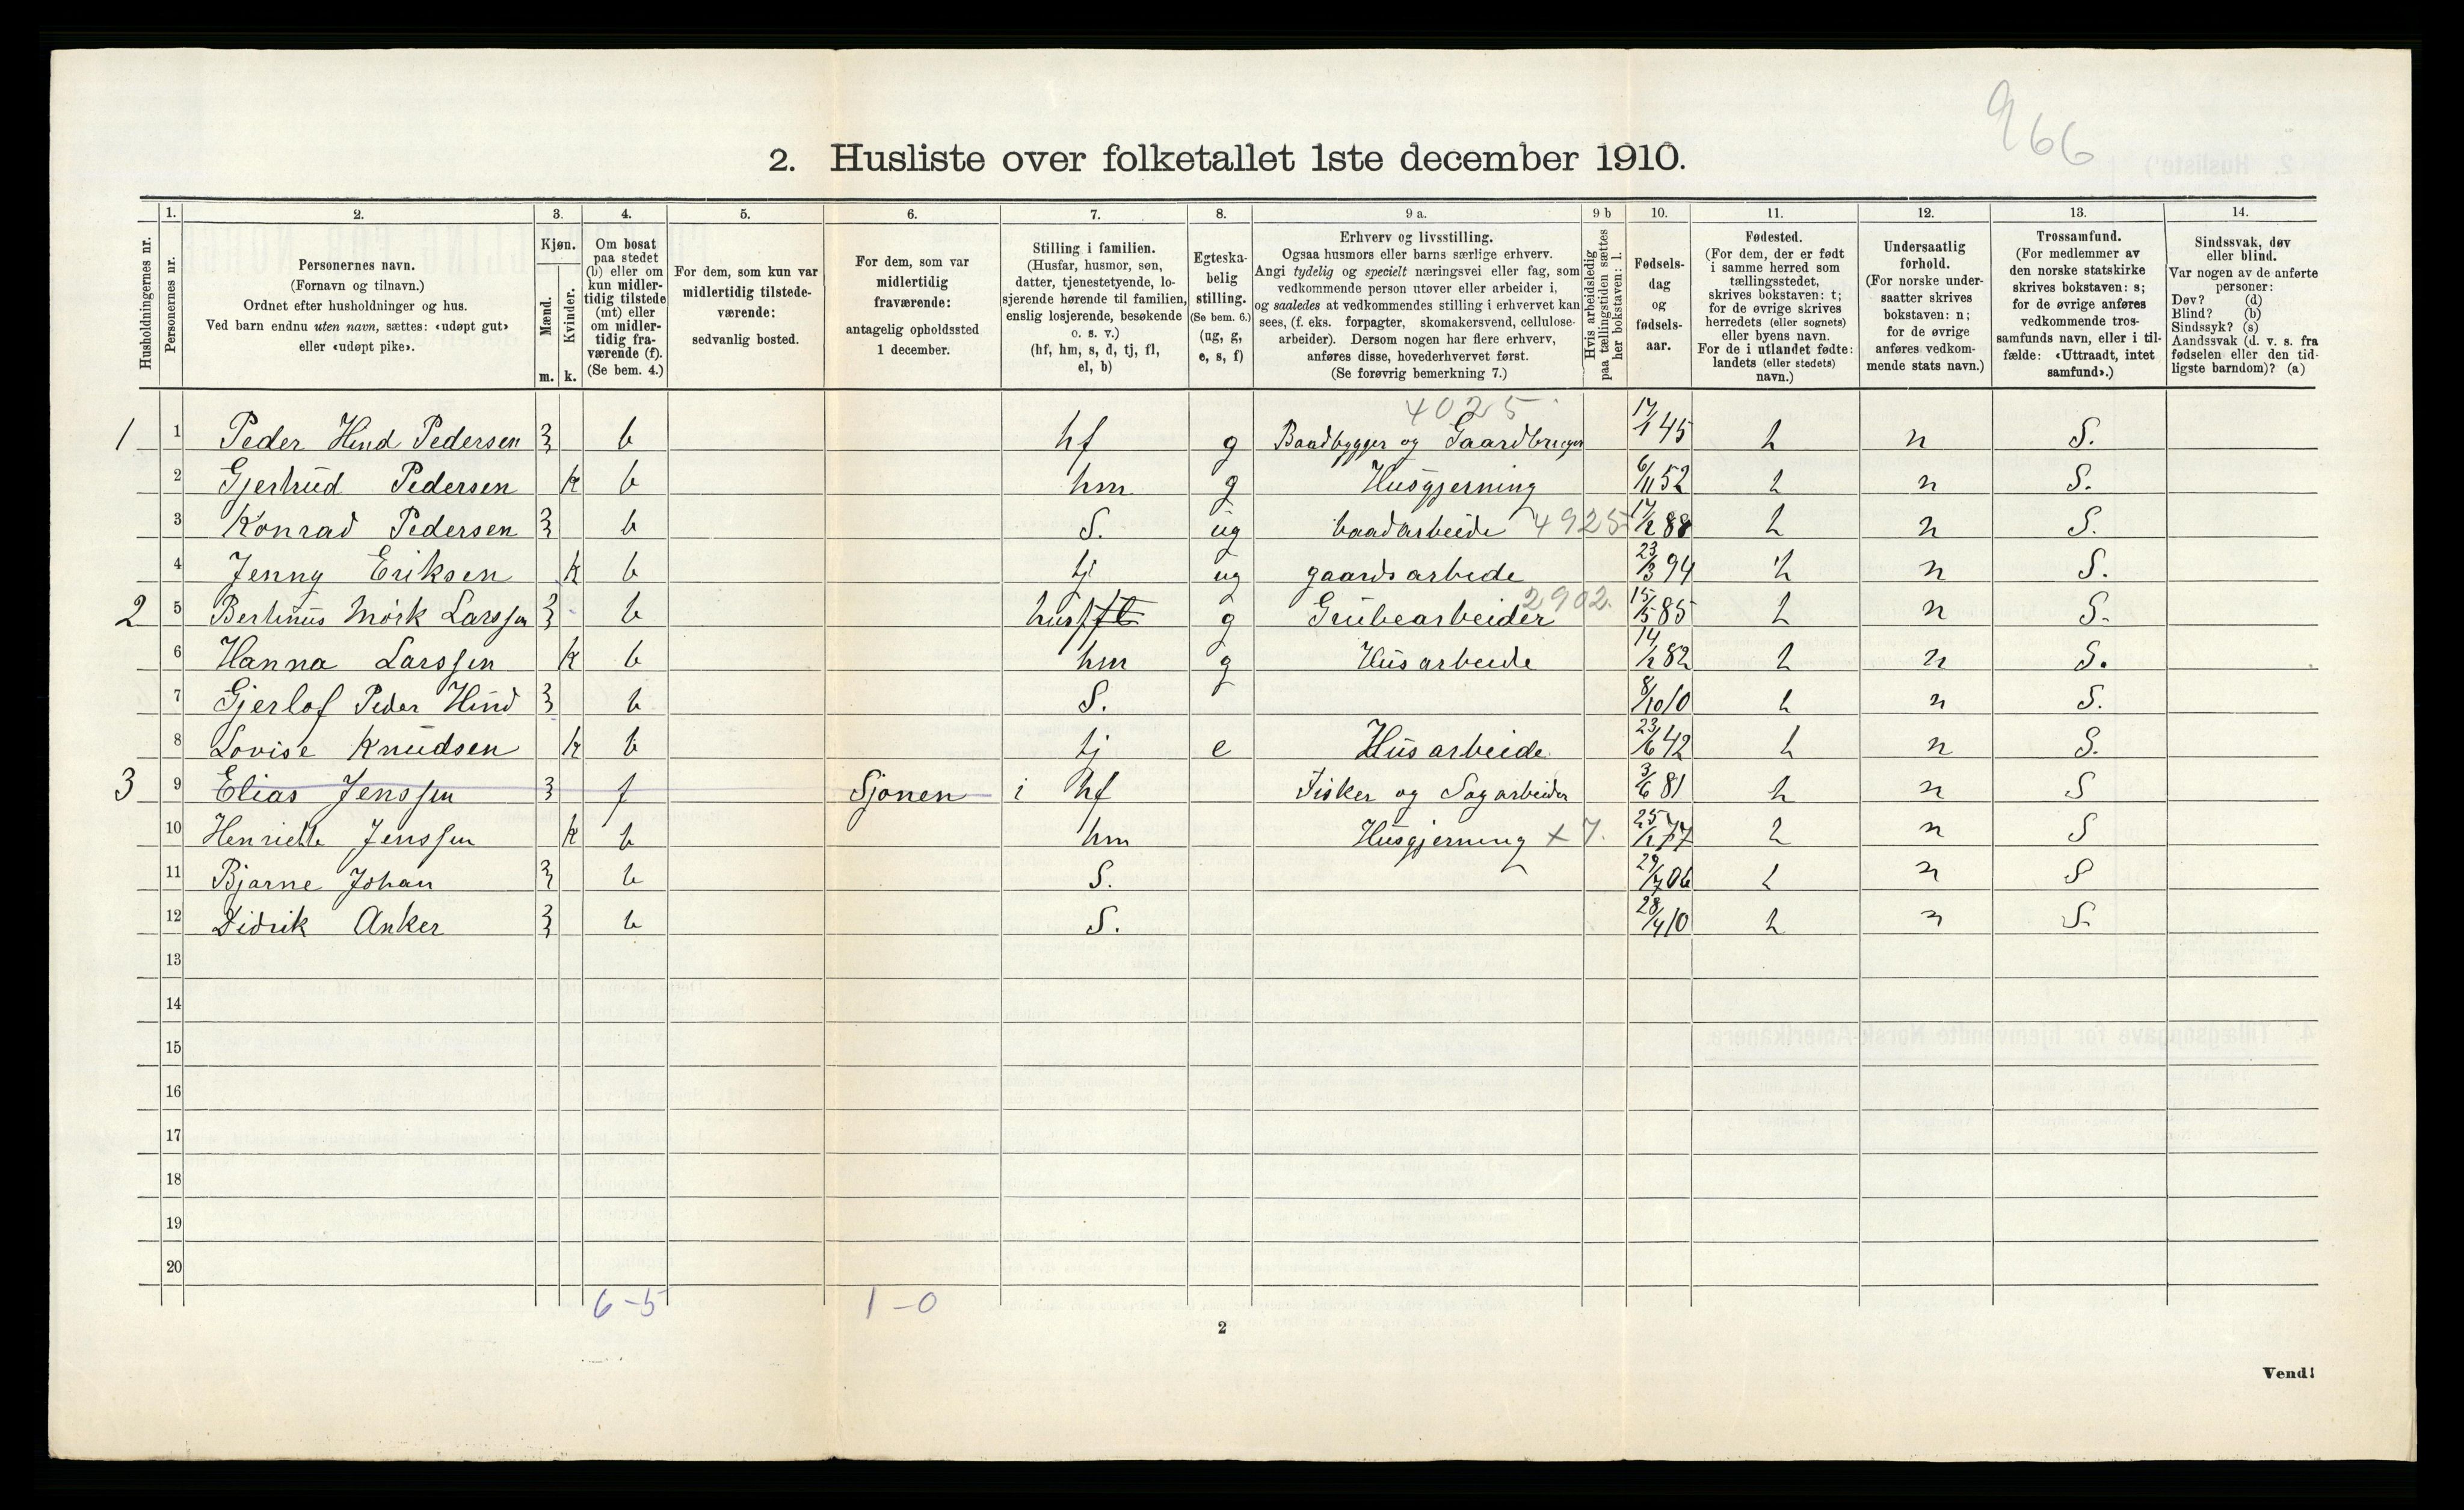 966
2. Husliste over folketallet 1ste december 1910.
Husholdningernes nr.
1. Personernes nr.
2. Personernes navn.
(Fornavn og tilnavn.)
Ordnet efter husholdninger og hus.
Ved barn endnu uten navn, sættes: «udøpt gut»
eller «udøpt pike».
3. Kjøn.
Mænd. m.
Kvinder. k.
4. Om bosat
paa stedet
(b) eller om
kun midler-
tidig tilstede
(mt) eller
om midler-
tidig fra-
værende (f).
(Se bem. 4.)
5. For dem, som kun var
midlertidig tilstede-
værende:
sedvanlig bosted.
6. For dem, som var
midlertidig
fraværende:
antagelig opholdssted
1 december.
7. Stilling i familien.
(Husfar, husmor, søn,
datter, tjenestetyende, lo-
sjerende hørende til familien,
enslig losjerende, besøkende
o. s. v.)
(hf, hm, s, d, tj, fl,
el, b)
8. Egteska-
belig
stilling.
(Se bem. 6.)
(ug, g,
e, s, f)
9 a. Erhverv og livsstilling.
Ogsaa husmors eller barns særlige erhverv.
Angi tydelig og specielt næringsvei eller fag, som
vedkommende person utøver eller arbeider i,
og saaledes at vedkommendes stilling i erhvervet kan
sees, (f. eks. forpagter, skomakersvend, cellulose-
arbeider). Dersom nogen har flere erhverv,
anføres disse, hovederhvervet først.
(Se forøvrig bemerkning 7.)
9 b Hvis arbeidsledig
paa tællingstiden sættes
her bokstaven: l.
10. Fødsels-
dag
og
fødsels-
aar.
11. Fødested.
(For dem, der er født
i samme herred som
tællingsstedet,
skrives bokstaven: t;
for de øvrige skrives
herredets (eller sognets)
eller byens navn.
For de i utlandet fødte:
landets (eller stedets)
navn.)
12. Undersaatlig
forhold.
(For norske under-
saatter skrives
bokstaven: n;
for de øvrige
anføres vedkom-
mende stats navn.)
13. Trossamfund.
(For medlemmer av
den norske statskirke
skrives bokstaven: s;
for de øvrige anføres
vedkommende tros-
samfunds navn, eller i til-
fælde: «Uttraadt, intet
samfund».)
14. Sindssvak, døv
eller blind.
Var nogen av de anførte
personer:
Døv? (d)
Blind? (b)
Sindssyk? (s)
Aandssvak (d. v. s. fra
fødselen eller den tid-
ligste barndom)? (a)
4025
1 1 Peder Hind Pedersen b hf g Baadbygger og Gaardbruger 17/1 45 n S.
2 Gjertrud Pedersen k b hm g Husgjerning 6/11 52 n S.
3 Konrad Pedersen b S. ug baadarbeide 4925 17/2 88 n S.
4 Jenny Eriksen k b tj ug gaardsarbede 23/3 94 n S.
2 5 Bertinus Mörk Larssen b g Grubearbeider 2902. 15/5 85 n S.
6 Hanna Larssen k b hm g Husarbeide 14/2 82 n S.
7 Gjerlof Peder Hind b S. 8/10 10 n S.
8 Lovise Knudsen k b tj e Husarbeide 23/6 42 n S.
3 9 Elias Jenssen f Sjonen i hf Fisker og Sagarbeider 3/6 81 n S
10 Henriette Jenssen k b hm Husgjerning x 7. 25/2 77 n S
11 Bjarne Johan b S. 29/7 06 n S
12 Didrik Anker b S. 28/4 10 n S.
13
14
15
16
17
18
19
20
6-5 1-0
2
Vend!